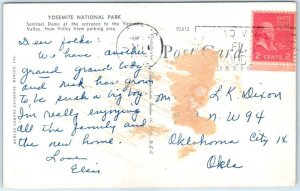 YOSEMITE NATIONAL PARK
Sentinel Dome at the entrance to the Yosemite
Valley, from Valley View parking area.
P2512
Post Card
UNITED STATES
2 CENTS 2
Dear folks:
We have another
grand grand baby
and nick has grown
to be such a big boy
I'm really enjoying
all the family and
the new home.
Love,
Elsie
L. K. Dixon
N. W 94
Oklahoma City 14
Okla